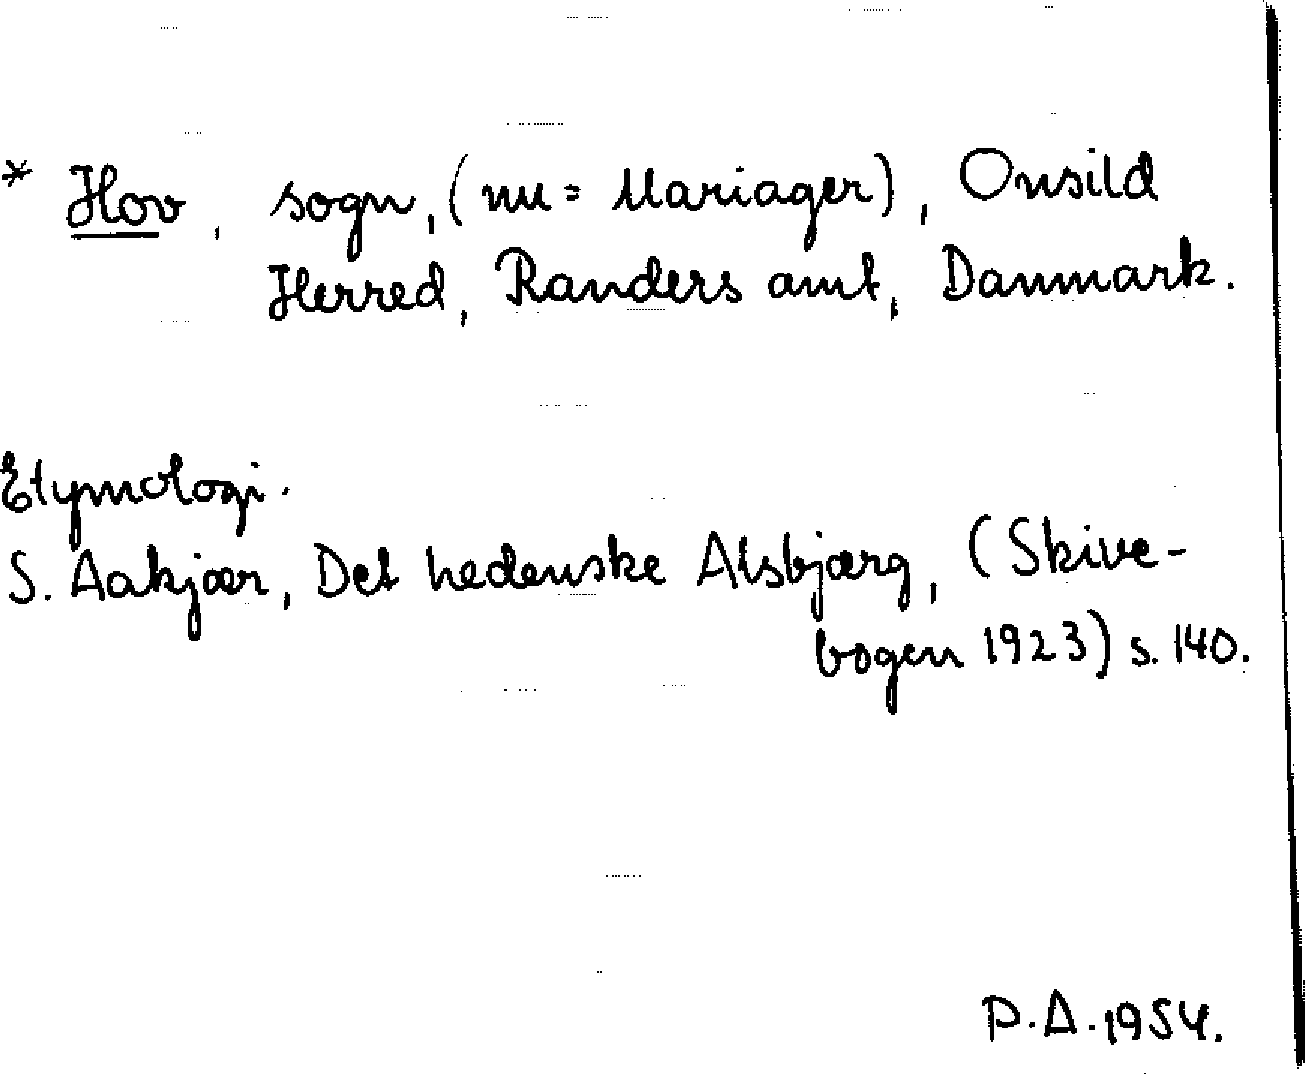 * Hov, sogn, (nu = Mariager), Onsild
Herred, Randers amt, Danmark.
Etymologi.
S. Aakjær, Det hedenske Alsbjærg, (Skive-
bogen 1923) s. 140.
P.A. 1954.